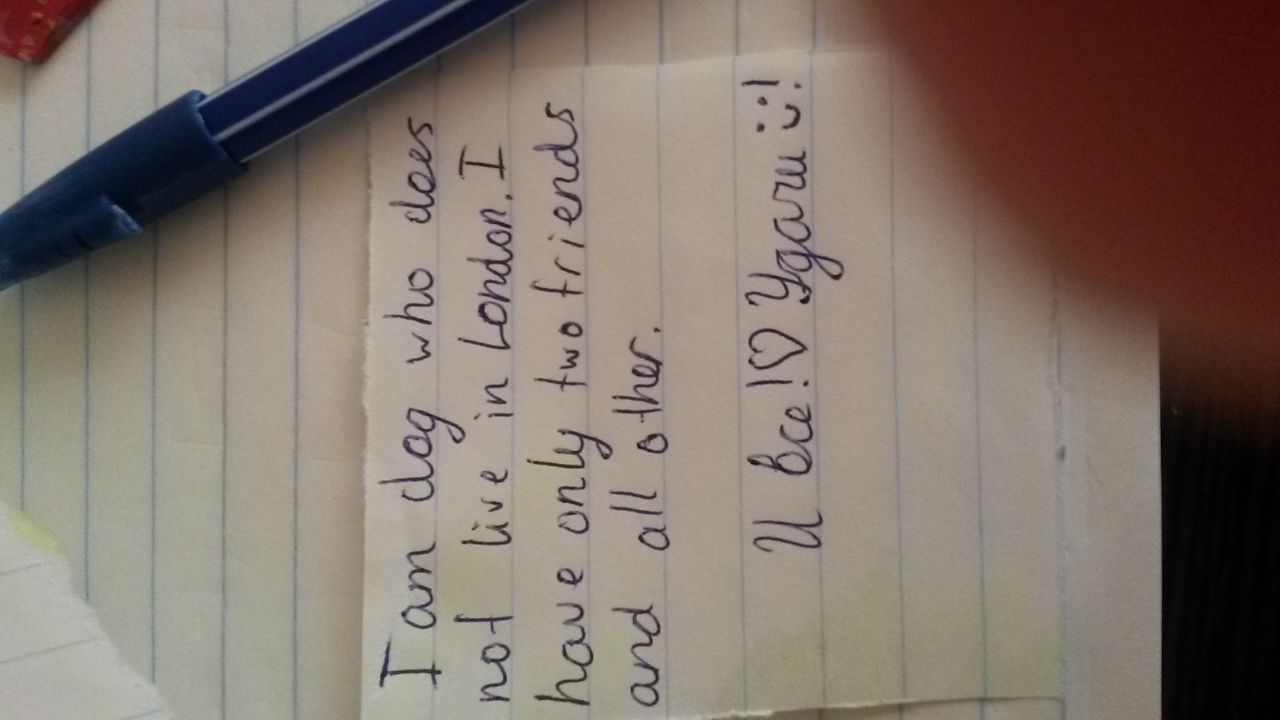 I am dog who does
not live in London. I
have only two friends
and all other.
И все!♡ Удачи :)!